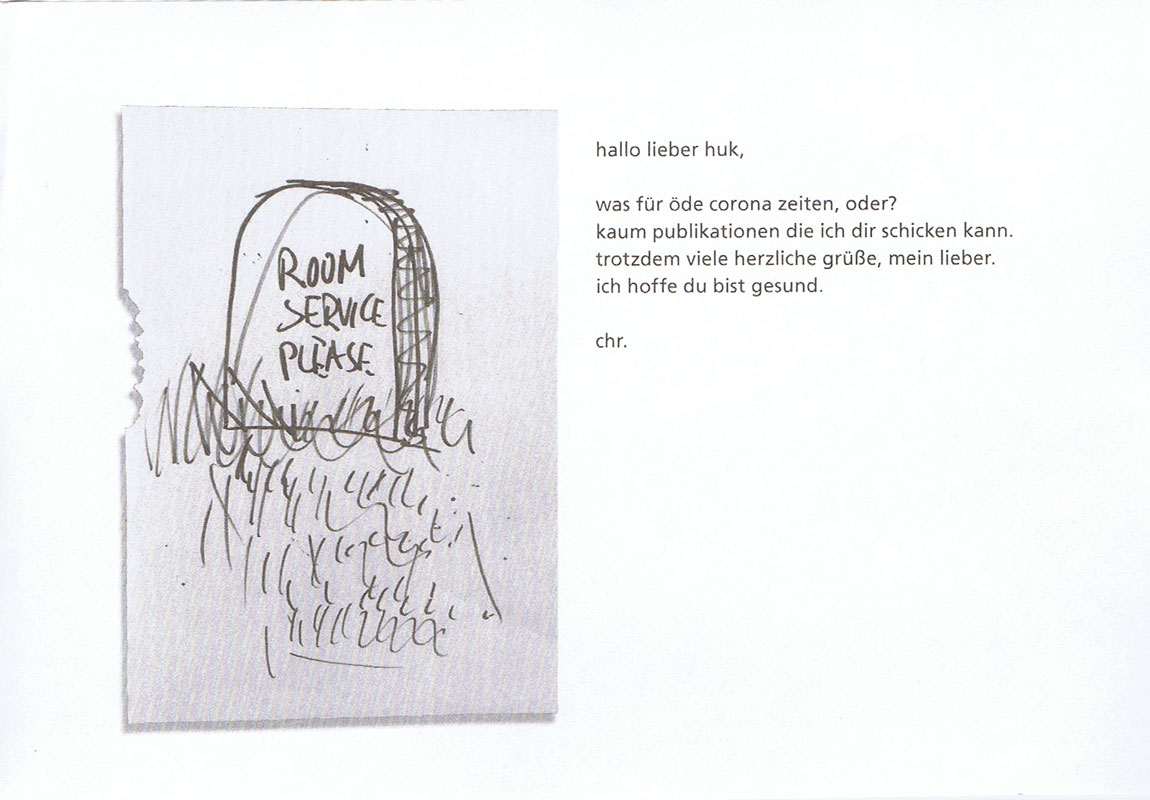 ROOM
SERVICE
PLEASE
hallo lieber huk,
was für öde corona zeiten, oder?
kaum publikationen die ich dir schicken kann.
trotzdem viele herzliche grüße, mein lieber.
ich hoffe du bist gesund.
chr.